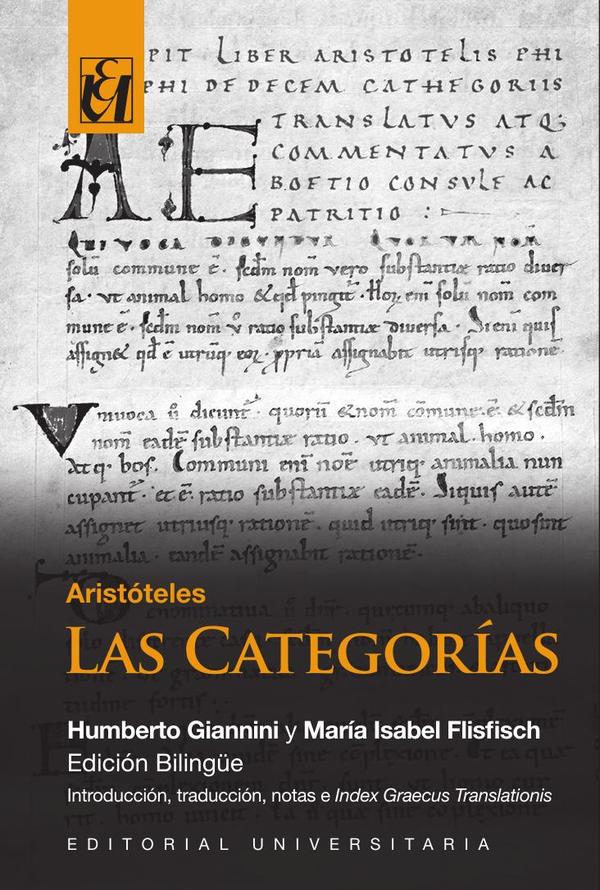 PIT LIBER ARISTOTELIS PHI
PHI DE DECEM CATHEGORIIS
TRANSLATVS ATQ;
COMMENTATVS A
BOETIO CONSVLE AC
PATRITIO :
AE
QUIVOCA
solū commune ē · scdm nom vero substantiæ ratio diuer
sa · vt animal homo & qd pingit · Horz eni solū nom com
mune ē · scdm nom v ratio substantiæ diuersa · Si eni quis
assign& qd ē utrūq · eoz · ppria assignabit utrisq rationē
Vniuoca ū dicunt · quorū & nom cōmune · ē · & scdm
nom eadē substantiæ ratio · vt animal · homo ·
atq · bos · Communi eni noē utriq animalia nun
cupant · et ē ratio substantiæ eadē · Siquis autē
assignet utriusq rationē · quid utriq sint · quo sint
animalia · eandē assignabit rationē ·
Aristóteles
LAS CATEGORÍAS
Humberto Giannini y María Isabel Flisfisch
Edición Bilingüe
Introducción, traducción, notas e Index Graecus Translationis
EDITORIAL UNIVERSITARIA